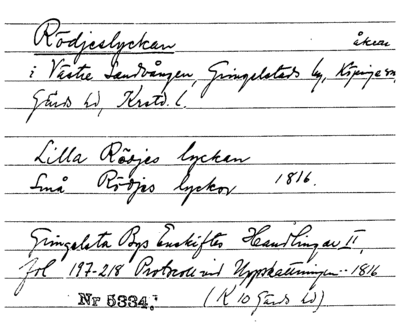 Rödjeslyckan åkrar
i Västra Sandvången, Gringelstads by, Köpinge sn,
Gärds hd, Krstd. l.
Lilla Rödjes lyckan
Små Rödjes lyckor 1816.
Gringelsta Bys Enskiftes Handlingar II,
fol 197-218 Protocoll vid Uppskattningen -- 1816
Nr 5334. (K 10 Gärds hd)